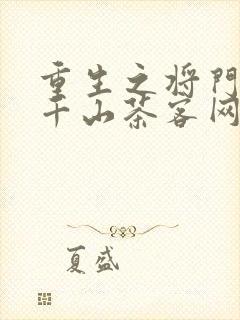 重生之将门
千山茶客网
夏盛